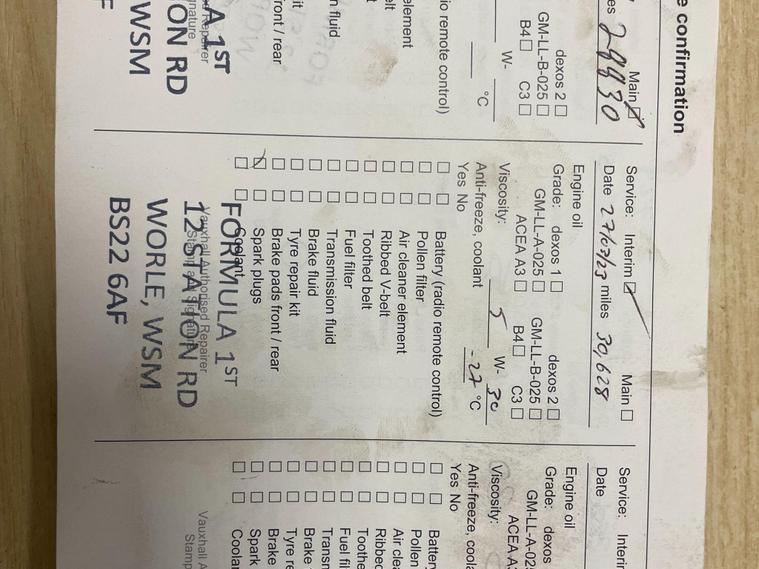 e confirmation
Main
es 29930
dexos 2
GM-LL-B-025
B4 C3
W-
°C
io remote control)
element
elt
n fluid
it
ront / rear
d Repairer
gnature
A 1ST
ON RD
WSM
F
Service: Interim Main
Date 27/07/23 miles 30,628
Engine oil
Grade: dexos 1 dexos 2
GM-LL-A-025 GM-LL-B-025
ACEA A3 B4 C3
Viscosity: 5 W- 30
Anti-freeze, coolant -27 °C
Yes No
Battery (radio remote control)
Pollen filter
Air cleaner element
Ribbed V-belt
Toothed belt
Fuel filter
Transmission fluid
Brake fluid
Tyre repair kit
Brake pads front / rear
Spark plugs
Coolant
Vauxhall Authorised Repairer
FORMULA 1ST
12 STATION RD
WORLE, WSM
BS22 6AF
Service: Interim
Date
Engine oil
Grade: dexos
GM-LL-A-025
ACEA A3
Viscosity:
Anti-freeze, coola
Yes No
Batter
Pollen
Air clea
Ribbed
Toothe
Fuel fi
Transm
Brake
Tyre re
Brake
Spark
Coolan
Vauxhall A
Stamp